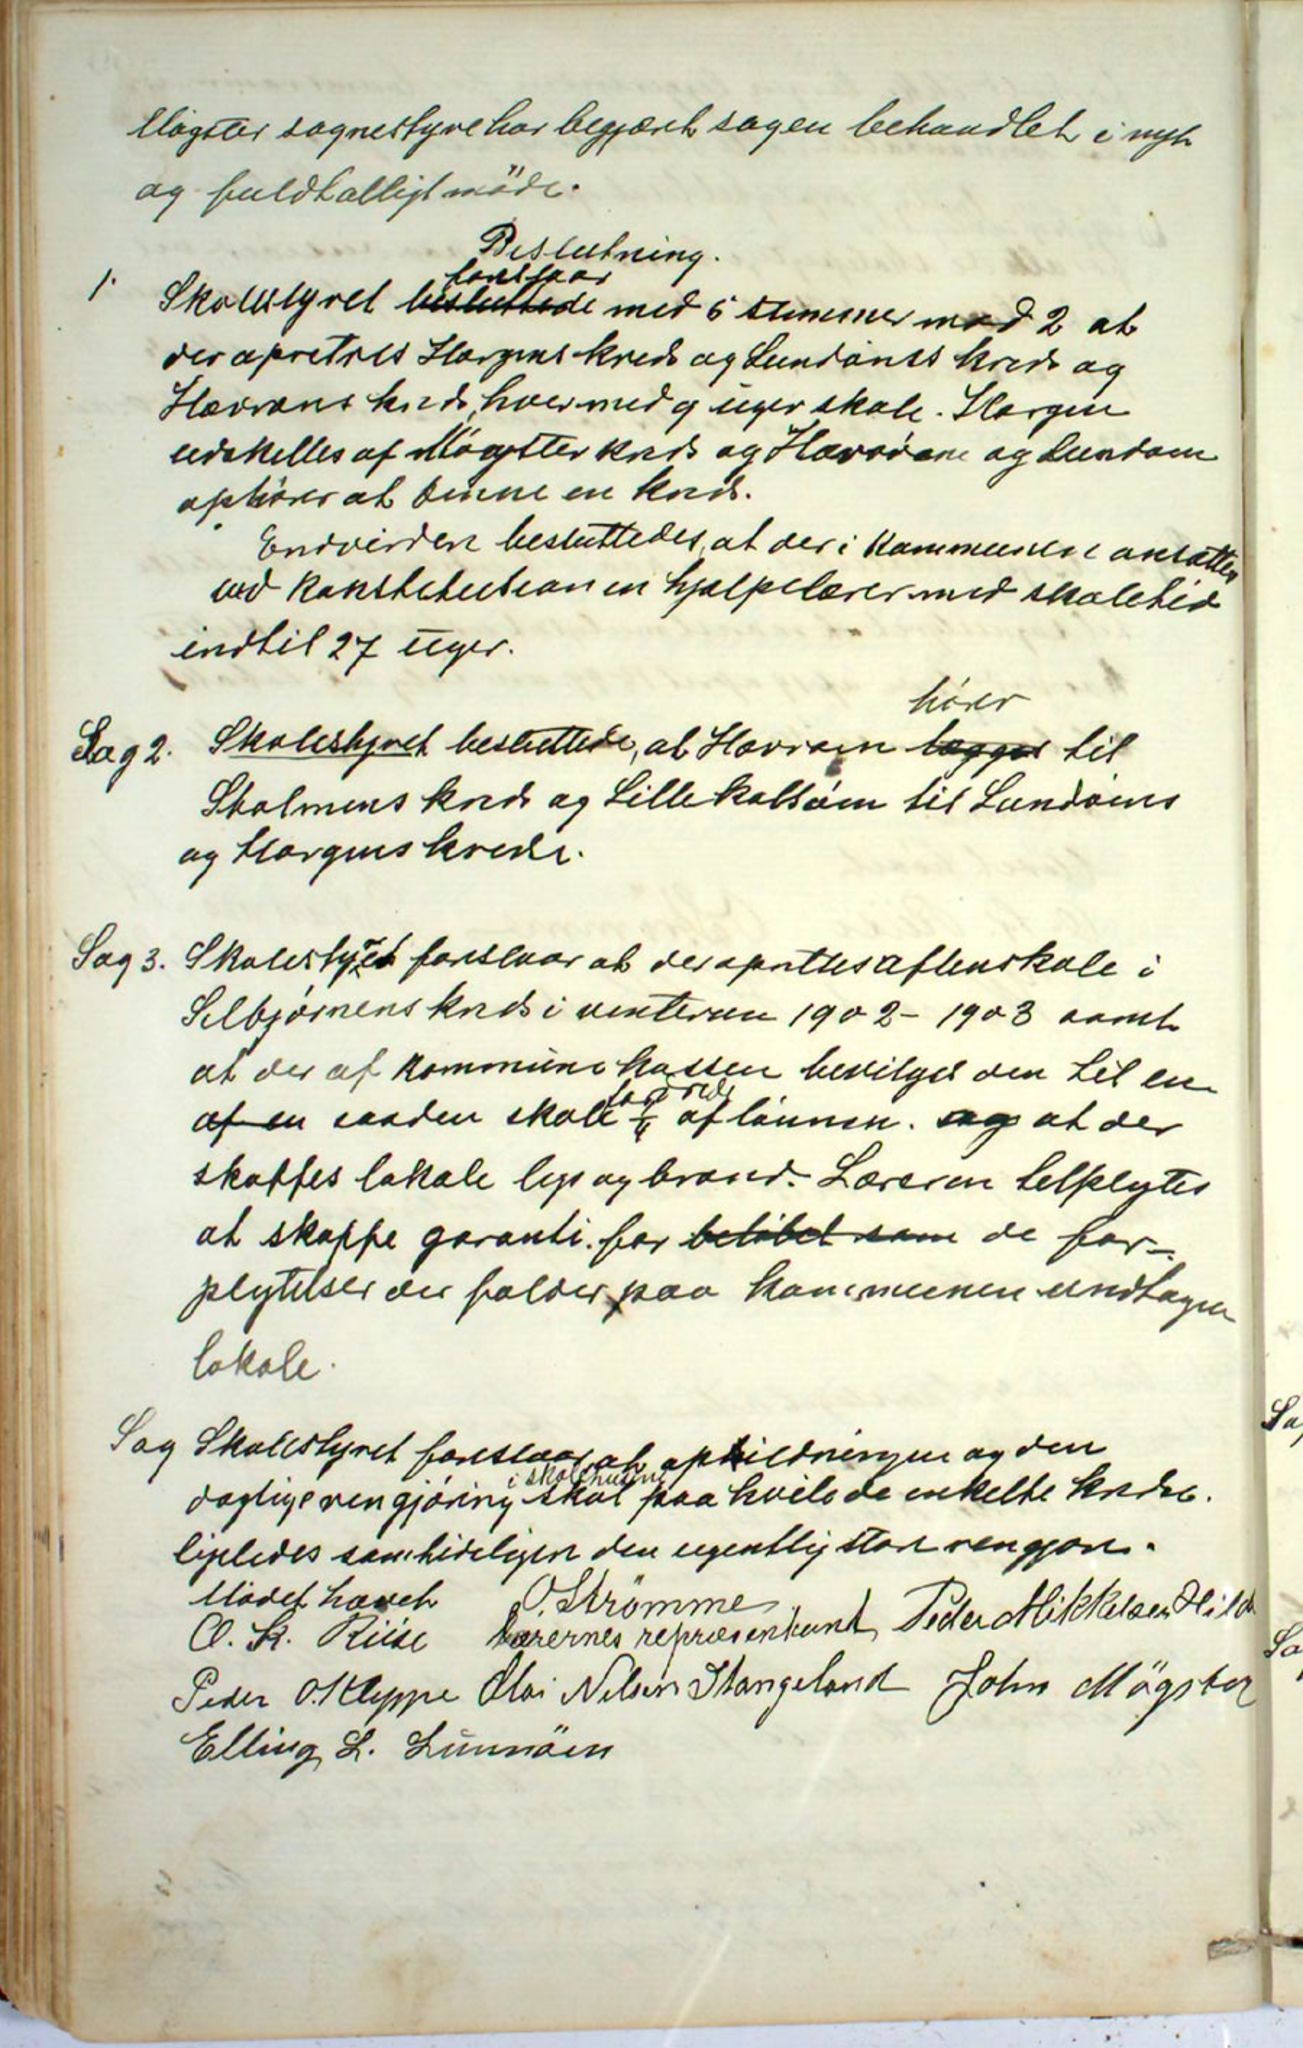 Møgster sognestyre har begjæret sagen behandlet i nyt
og fuldtalligt møde.
Beslutning.
foreslaar
1. Skolestyret besluttede med 5 stemmer mod 2 at
der oprettes Horgens kreds og Lundøens kreds og
Hævrøens kreds, hver med 9 uger skole. Horgen
udskilles af Møgster kreds og Hævrøen og Lundøen
ophører at danne en kreds.
Endvidere besluttedes, at der i kommunen ansættes
ved konstitution en hjælpelærer med skoletid
indtil 27 uger.
hører
Sag 2. Skolestyret besluttede, at Hævrøen lægges til
Stolmens kreds og Lille Kalsøen til Lundøens
og Horgens kreds.
Sag 3. Skolestyret foreslaar at der oprettes aftenskole i
Selbjørnens kreds i vinteren 1902-1903 samt
at der af kommunekassen bevilges den til en
af en saadan skole af lønnen. og at der
skaffes lokale lys og brænd. Læreren tilpligtes
at skaffe garanti for beløbet som de for-
pligtelser der falder paa kommunen undtagen
lokale.
Sag Skolestyret foreslaar at ophildningen og den
i skolehusene
daglige rengjøring skal paa hvile de enkelte kredse.
ligeledes samtidigen den egentlig store rengjøre.
Mødet hævet O. Strømme Peder Mikkelsen Hild
O. K. Riise Lærernes repræsentant,
Peder O. Kleppe Olai Nilsen Stangeland John Møgster
Elling L. Lunnøen
Sa
Sa